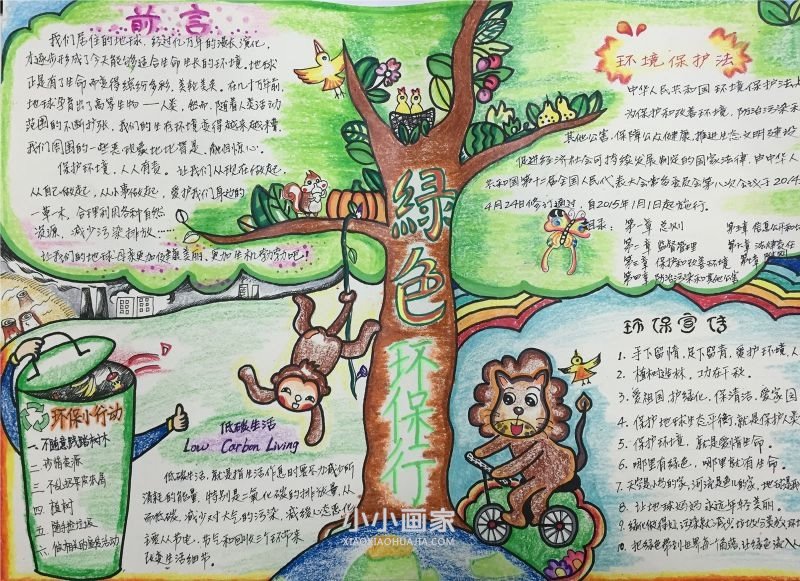 前言
我们居住的地球,经过亿万年的漫长演化,
才逐步形成了今天能够适合生命生长的环境。地球
正是有了生命而变得缤纷多彩,美轮美奂。在几十万年前,
地球孕育出了高等生物——人类。然而,随着人类活动
范围的不断扩张,我们的生存环境变得越来越糟,
我们周围的一些
保护环境,人人有责。让我们从现在做起,
从自己做起,从小事做起,爱护我们身边的
一草一木,合理利用各种自然
资源,减少污染排放……
让我们的地球母亲更加健康美丽,更加生机勃勃吧!
环境保护法
中华人民共和国环境保护法
治保护和改善环境,防治污染和
其他公害,保障公众健康,推进生态文明建设
促进经济社会可持续发展制定的国家法律,由中华人
共和国第十二届全国人民代表大会常务委员会第八次会议于2014
4月24日修订通过,自2015年1月1日起施行。
目录:第一章 总则
第二章 监督管理
第三章 保护和改善环境
第四章 防治污染和其他公害
第五章 信息公开和
第六章 法律责任
第七章 附则
綠色
环保行
环保小行动
一、不随意践踏树木
二、珍惜资源
三、不乱
四、植树
五、随手
六、做
低碳生活
Low Carbon Living
低碳生活,就是指生活作息时要尽力减少所
消耗的能量,特别是二氧化碳的排放量,从
而低碳,减少对大气的污染,减缓生态恶化
主要从节电、节气和回收三个环节来
改变生活细节。
环保宣传
1. 手下留情,足下留青,爱护环境,人
2. 植树造林,功在千秋。
3. 爱祖国,护绿化,保清洁,爱家园
4. 保护地球生态平衡,就是保护人类
5. 保护环境,就是爱惜生命。
6. 哪里有绿色,哪里就有生命。
7. 天空是小鸟的家,河流是鱼儿的家,地球是我
8. 让地球妈妈永远年轻美丽。
10. 把绿色带到世界每一个角落,让绿色流入人
小小画家
XIAOXIAOHUAJIA.COM